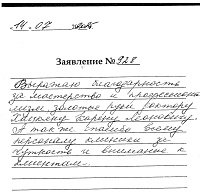 14.07
Заявление № 928
Выражаю благодарность
за мастерство и профессионализм
золотые руки доктору
А также спасибо всему
персоналу клиники за
чуткость и внимание к
клиентам.